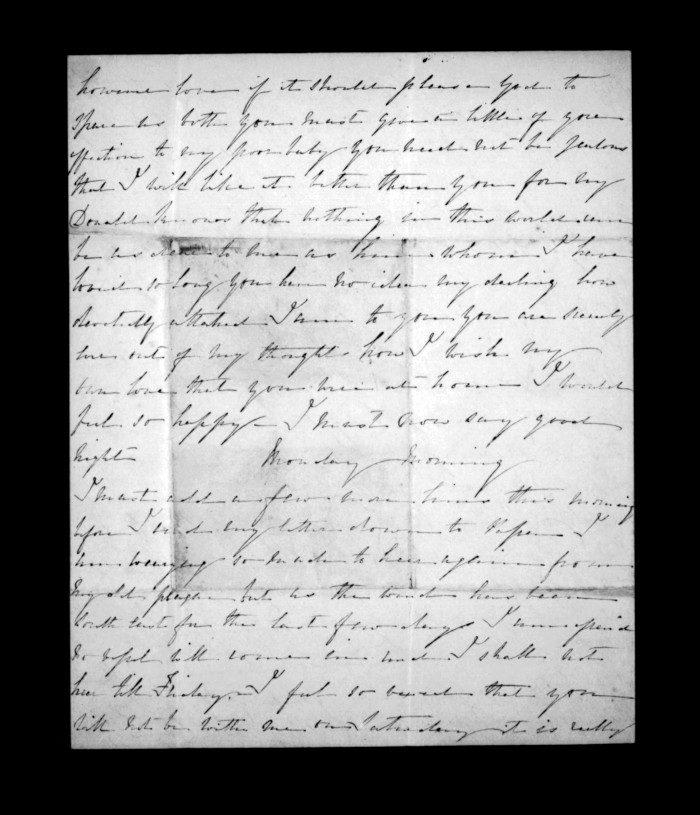 however love if it should please God to
spare us both you must give a little of your
affection to my poor baby you need not be jealous
that I will like it better than you for my
Donald knows that nothing in this world can
be as dear to me as him whom I have
loved so long you have no idea my darling how
devotedly attached I am to you you are scarcely
ever out of my thoughts how I wish my
own love that you were at home I would
feel so happy I must now say good
night Monday Morning
I must add a few more lines this morning
before I send my letter down to I
am wearying so much to hear again from
my old but as the wind has been
South East for the last few days I am afraid
no vessel will come in and I shall not
hear till Friday I feel so that you
will not be with me on Saturday it is really